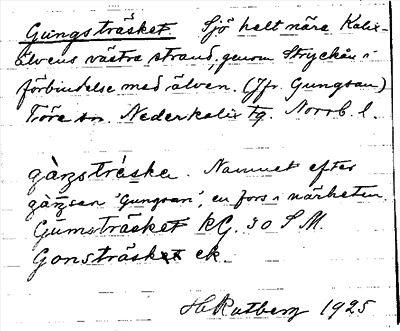 Gungsträsket. Sjö helt nära Kalix-
älvens västra strand, genom Stryckån i
förbindelse med älven. (Jfr. Gungsan)
Töre sn. Nederkalix tg. Norrb. l.
gàŋstrèske. Namnet efter
gàŋsen 'Gungsan', en fors i närheten.
Gumsträsket kG. 30 S M.
Gonsträsket ek.
H Ratberg 1925